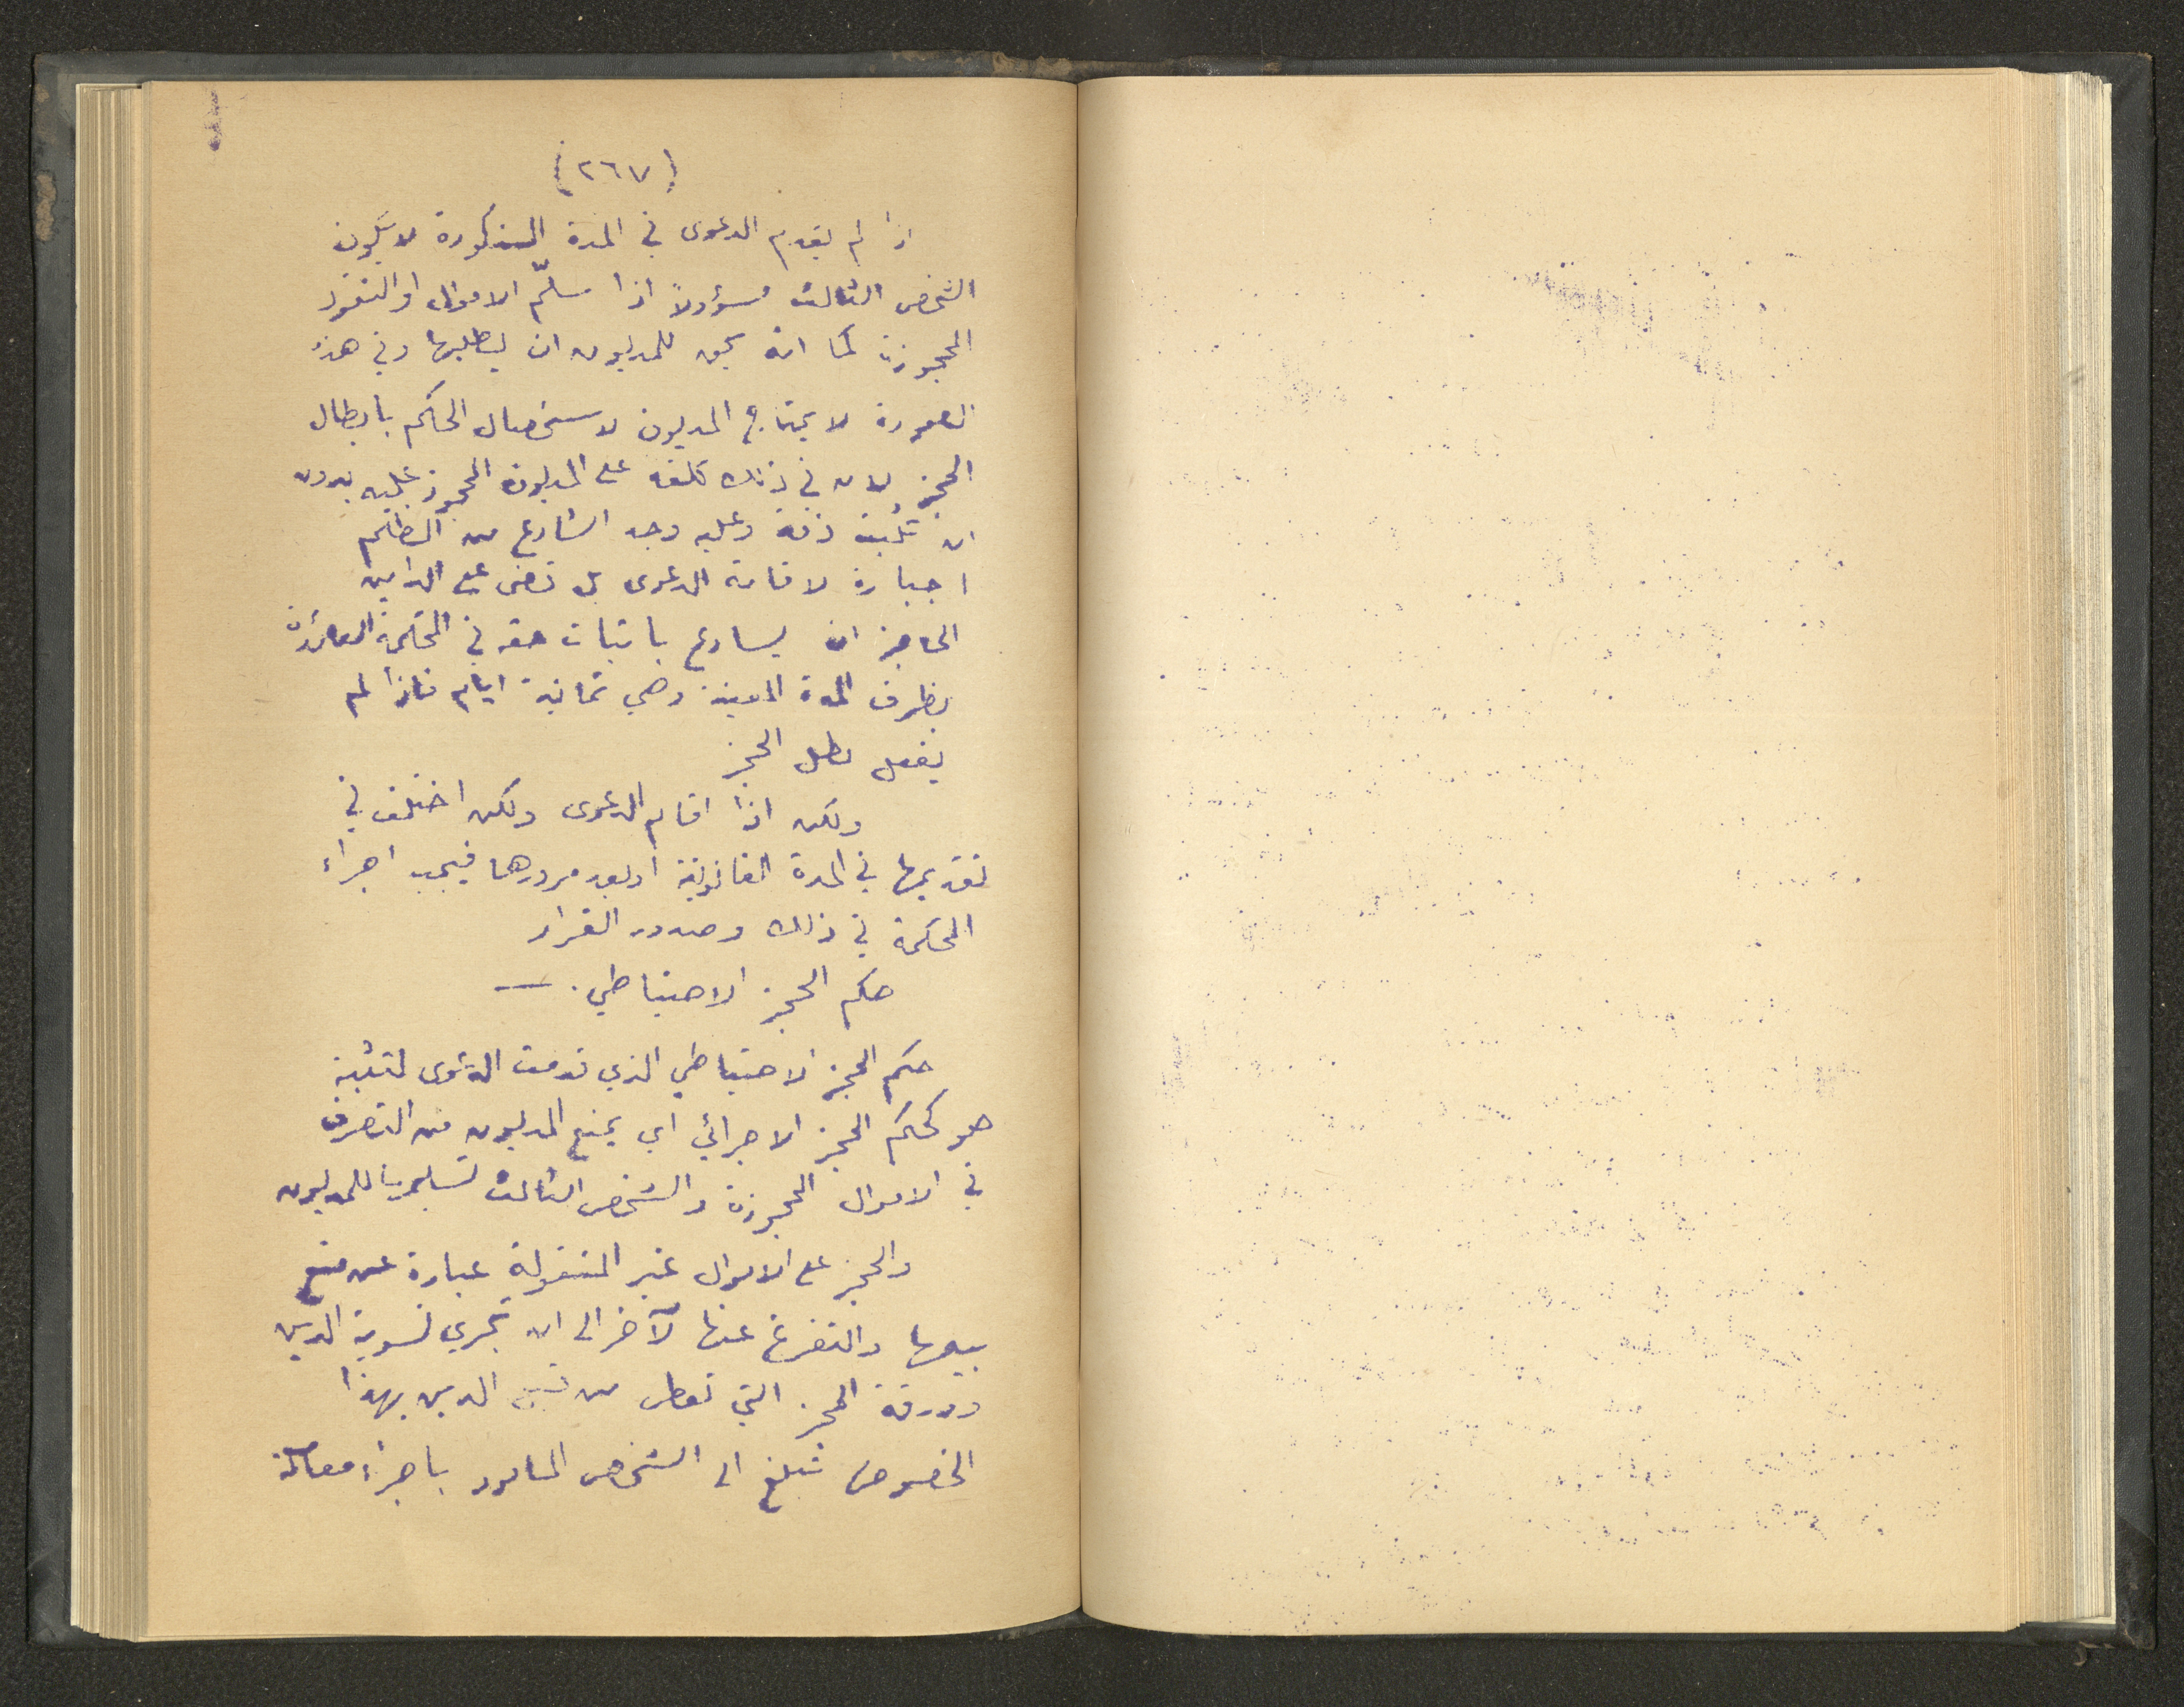 (٢٦٧)
اذا لم يقدم الدعوى في المدة المذكورة لا يكون
الشخص الثالث مسؤولاً اذا سلّم الاموال او النقود
المحجوزة كما انه يحق للمديون ان يطلبها وفي هذه
الصورة لا يحتاج المديون لاستحصال الحكم بابطال
الحجز لان في ذلك كلفة على المديون المحجوز عليه بدون
ان تثبت ذمته وعليه وجد الشارع من الظلم
اجباره لاقامة الدعوى بل قضى على الداين
الحاجز ان يسارع باثبات حقه في المحكمة العائدة
بظرف المدة المعينة وهي ثمانية ايام فاذا لم
يفعل بطل الحجز
ولكن اذا اقام الدعوى ولكن اختلف في
تقديمها في المدة القانونية او بعد مرورها فيجب اجراء
المحاكمة في ذلك وصدور القرار
حكم الحجز الاحتياطي . —
حكم الحجز الاحتياطي الذي قدمت الدعوى لتثبيته
هو كحكم الحجز الاجرائي اي يمنع المديون من التصرف
في الاموال المحجوزة والشخص الثالث تسليمها للمديون
والحجز على الاموال غير المنقولة عبارة عن منع
بيعها والتفرغ عنها لآخر الى ان تجري تسوية الدين
وورقة الحجز التي تعطى من الدين بهذا
الخصوص تبلغ الى الشخص المأمور باجراء معاملة